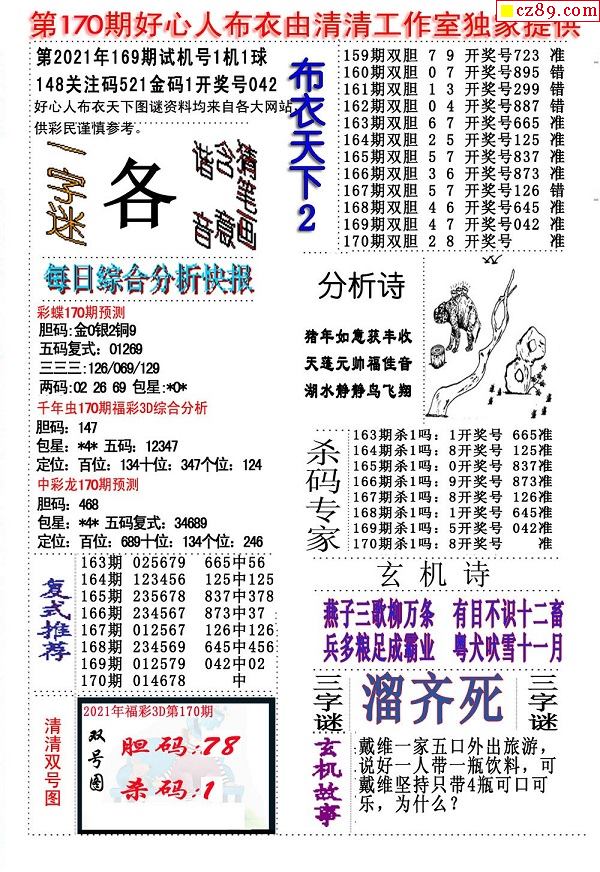 cz89.com
第170期好心人布衣由清清工作室独家提供
第2021年169期试机号1机1球
148关注码521金码1开奖号042
好心人布衣天下图谜资料均来自各大网站,
供彩民谨慎参考。
一字迷
各
猜笔画
含意
谐音
布衣天下2
159期双胆 7 9 开奖号723 准
160期双胆 0 7 开奖号895 错
161期双胆 1 3 开奖号299 错
162期双胆 0 4 开奖号887 错
163期双胆 6 7 开奖号665 准
164期双胆 2 5 开奖号125 准
165期双胆 5 7 开奖号837 准
166期双胆 3 6 开奖号873 准
167期双胆 5 7 开奖号126 错
168期双胆 4 6 开奖号645 准
169期双胆 4 7 开奖号042 准
170期双胆 2 8 开奖号 准
每日综合分析快报
彩蝶170期预测
胆码:金0银2铜9
五码复式：01269
三三三:126/069/129
两码:02 26 69 包星:*0*
千年虫170期福彩3D综合分析
胆码：147
包星：*4* 五码：12347
定位：百位：134十位：347个位：124
中彩龙170期预测
胆码：468
包星：*4* 五码复式：34689
定位：百位：689十位：134个位：246
分析诗
猪年如意获丰收
天蓬元帅福佳音
湖水静静鸟飞翔
杀码专家
163期杀1吗：1开奖号 665准
164期杀1吗：8开奖号 125准
165期杀1吗：0开奖号 837准
166期杀1吗：9开奖号 873准
167期杀1吗：8开奖号 126准
168期杀1吗：1开奖号 645准
169期杀1吗：5开奖号 042准
170期杀1吗：8开奖号 准
复式推荐
163期 025679 665中56
164期 123456 125中125
165期 235678 837中378
166期 234567 873中37
167期 012567 126中126
168期 234569 645中456
169期 012579 042中02
170期 014678 中
玄机诗
燕子三歌柳万条 有目不识十二畜
兵多粮足成霸业 粤犬吠雪十一月
三字谜
溜齐死
三字谜
清清双号图
2021年福彩3D第170期
双号图
胆码:78
杀码:1
玄机故事
戴维一家五口外出旅游，
说好一人带一瓶饮料，可
戴维坚持只带4瓶可口可
乐，为什么？